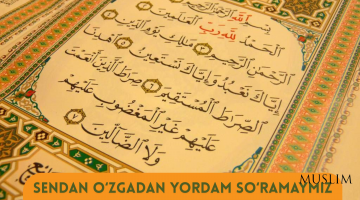 بِسْمِ اللَّهِ الرَّحْمَٰنِ الرَّحِيمِ
الْحَمْدُ لِلَّهِ رَبِّ الْعَالَمِينَ ٢
الرَّحْمَٰنِ الرَّحِيمِ ٣ مَالِكِ يَوْمِ الدِّينِ ٤
إِيَّاكَ نَعْبُدُ وَإِيَّاكَ نَسْتَعِينُ ٥ اهْدِنَا
الصِّرَاطَ الْمُسْتَقِيمَ ٦ صِرَاطَ الَّذِينَ أَنْعَمْتَ
عَلَيْهِمْ غَيْرِ الْمَغْضُوبِ عَلَيْهِمْ
وَلَا الضَّالِّينَ ٧
SENDAN O‘ZGADAN YORDAM SO‘RAMAYMIZ
MUSLIM